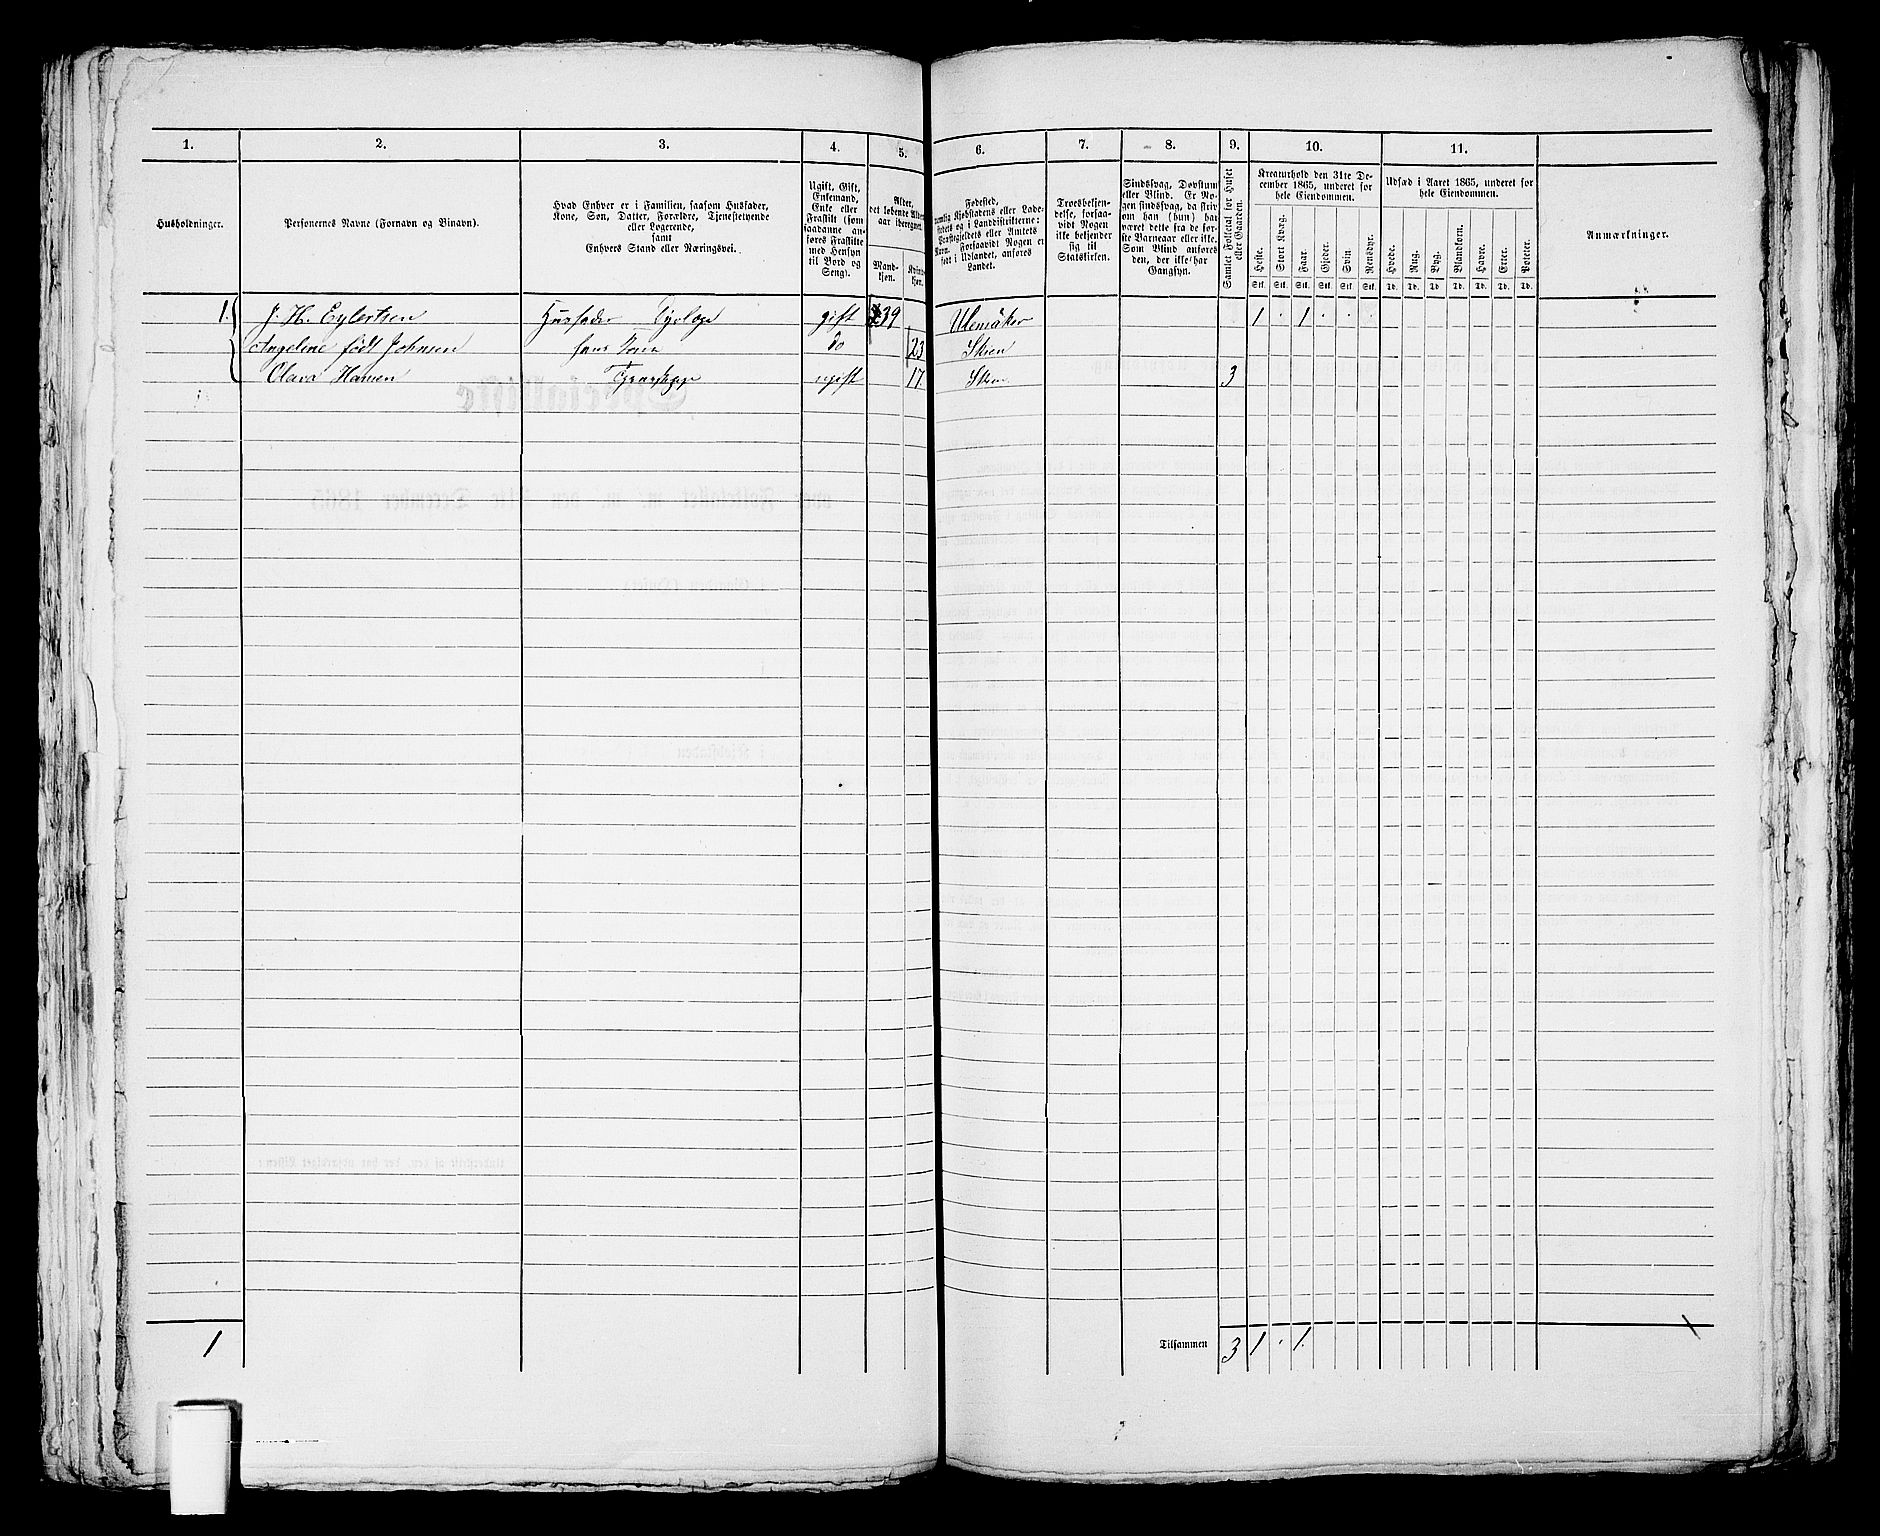 1. 2. 3. 4. 5. 6. 7. 8. 9. 10. 11.
Husholdninger.
Personernes Navne (Fornavn og Binavn).
Hvad Enhver er i Familien, saasom Husfader,
Kone, Søn, Datter, Forældre, Tjenestetyende
eller Logerende,
samt
Enhvers Stand eller Næringsvei.
Ugift, Gift,
Enkemand,
Enke eller
Fraskilt (som
saadanne an-
føres Fraskilte
med Hensyn
til Bord og
Seng).
Alder,
det løbende Alders-
aar iberegnet.
Mand-
kjøn.
Kvind-
kjøn.
Fødested,
Landet.
Troesbekjen-
delse, forsaa-
vidt Nogen
ikke bekjender
sig til
Statskirken.
Sindssvag, Døvstum
eller Blind. Er No-
gen sindssvag, da skriv
om han (hun) har
været dette fra de før-
ste Barneaar eller ikke.
Som Blind anføres
den, der ikke har
Gangsyn.
Samlet Folketal for Huset
eller Gaarden.
Kreaturhold den 31te De-
cember 1865, underet for
hele Eiendommen.
Heste. Stort Kvæg. Faar. Gjeder. Svin. Rensdyr.
Stk. Stk. Stk. Stk. Stk. Stk.
Udsæd i Aaret 1865, underet for
hele Eiendommen.
Hvede. Rug. Byg. Blandkorn. Havre. Erter. Poteter.
Td. Td. Td. Td. Td. Td. Td.
Anmærkninger.
1. J. H. Eylertsen Husfader gift 39 1 . 1 . . .
Angeline født Johnsen hans Kone do 23 Skien
Olava Hansen ugift 17 Skien 3
1 Tilsammen 3 1 . 1.